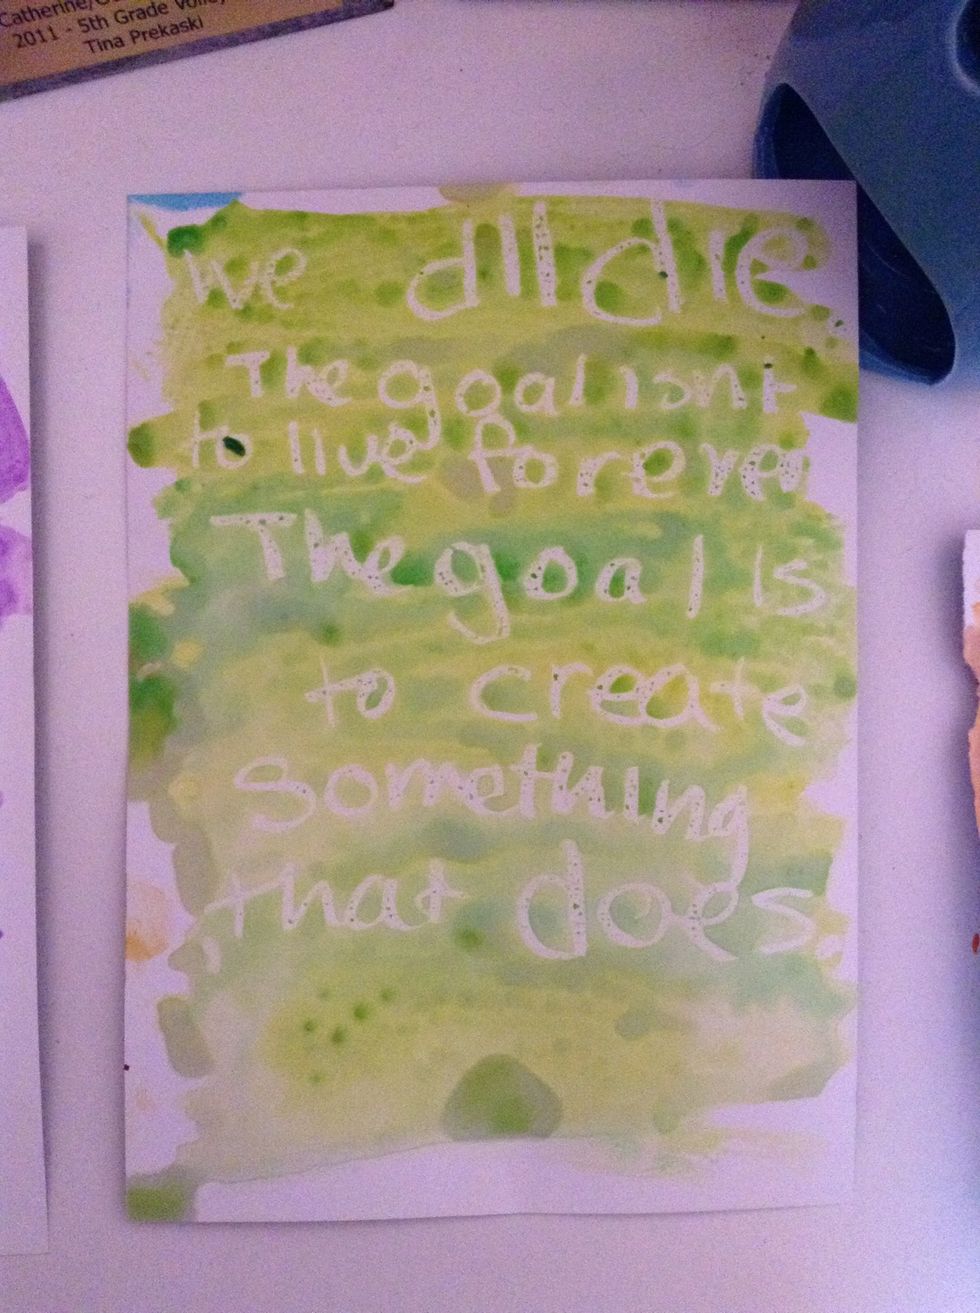 Catherine/
2011 - 5th Grade Volley
Tina Prekaski
we all die.
The goal isnt
to live forever
The goal is
to create
something
that does.